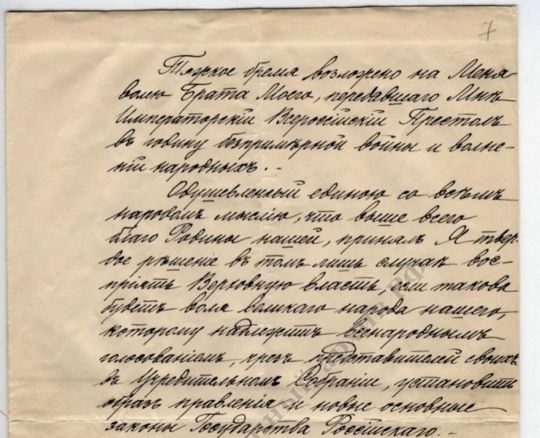 7
Тяжкое бремя возложено на Меня
волею Брата Моего, передавшаго Мнѣ
Императорскій Всероссійскій Престолъ
въ годину безпримѣрной войны и волне-
ній народныхъ. -
Одушевленный единою со всѣмъ
народомъ мыслію, что выше всего
благо Родины нашей, принялъ Я твер-
дое рѣшеніе въ томъ лишь случаѣ вос-
пріять Верховную власть, если такова
будетъ воля великаго народа нашего,
которому надлежитъ всенароднымъ
голосованіемъ, чрезъ представителей своихъ
въ Учредительномъ Собраніи, установить
образъ правленія и новые основные
законы Государства Россійскаго. -